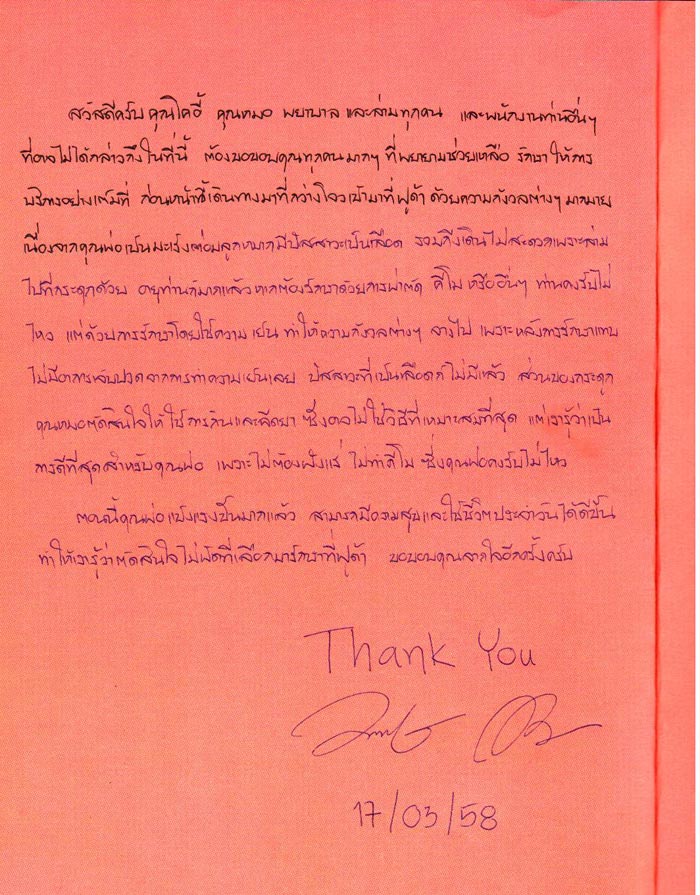 สวัสดีครับ คุณโคอี้ คุณหมอ พยาบาล และล่ามทุกคน และพนักงานท่านอื่นๆ
ที่อาจไม่ได้กล่าวถึงในที่นี้ ต้องขอขอบคุณทุกคนมากๆ ที่พยายามช่วยเหลือ รักษา ให้การ
บริการอย่างเต็มที่ ก่อนหน้านี้เดินทางมาที่กว่างโจวเข้ามาที่ฟูด้า ด้วยความกังวลต่างๆ มากมาย
เนื่องจากคุณพ่อเป็นมะเร็งต่อมลูกหมากมีปัสสาวะเป็นเลือด รวมถึงเดินไม่สะดวกเพราะลาม
ไปที่กระดูกด้วย อายุท่านก็มากแล้วหากต้องรักษาด้วยการผ่าตัด คีโม หรืออื่นๆ ท่านคงรับไม่
ไหว แต่ด้วยการรักษาโดยใช้ความเย็น ทำให้ความกังวลต่างๆ จางไป เพราะหลังการรักษาแทบ
ไม่มีอาการเจ็บปวดจากการทำความเย็นเลย ปัสสาวะที่เป็นเลือดก็ไม่มีแล้ว ส่วนของกระดูก
คุณหมอตัดสินใจให้ใช้การกินและฉีดยา ซึ่งอาจไม่ใช่วิธีที่เหมาะสมที่สุด แต่เรารู้ว่าเป็น
การดีที่สุดสำหรับคุณพ่อ เพราะไม่ต้องฝังแร่ ไม่ทำคีโม ซึ่งคุณพ่อคงรับไม่ไหว
ตอนนี้คุณพ่อแข็งแรงขึ้นมากแล้ว สามารถมีความสุขและใช้ชีวิตประจำวันได้ดีขึ้น
ทำให้เรารู้ว่าตัดสินใจไม่ผิดที่เลือกมารักษาที่ฟูด้า ขอขอบคุณจากใจอีกครั้งครับ
Thank You
17/03/58